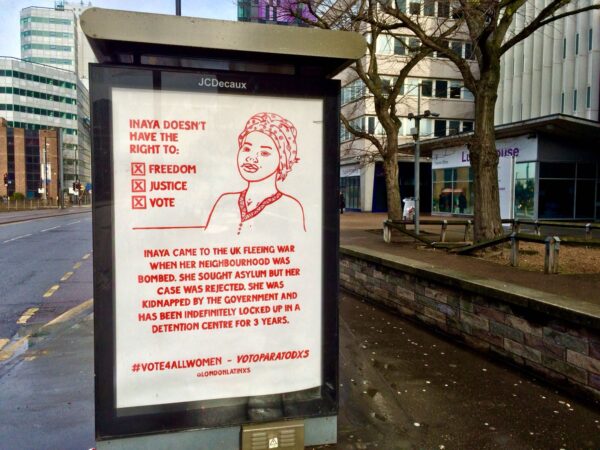 JCDecaux
INAYA DOESN'T
HAVE THE
RIGHT TO:
FREEDOM
JUSTICE
VOTE
INAYA CAME TO THE UK FLEEING WAR
WHEN HER NEIGHBOURHOOD WAS
BOMBED. SHE SOUGHT ASYLUM BUT HER
CASE WAS REJECTED. SHE WAS
KIDNAPPED BY THE GOVERNMENT AND
HAS BEEN INDEFINITELY LOCKED UP IN A
DETENTION CENTRE FOR 3 YEARS.
#VOTE4ALLWOMEN - VOTOPARATODXS
@LONDONLATINXS